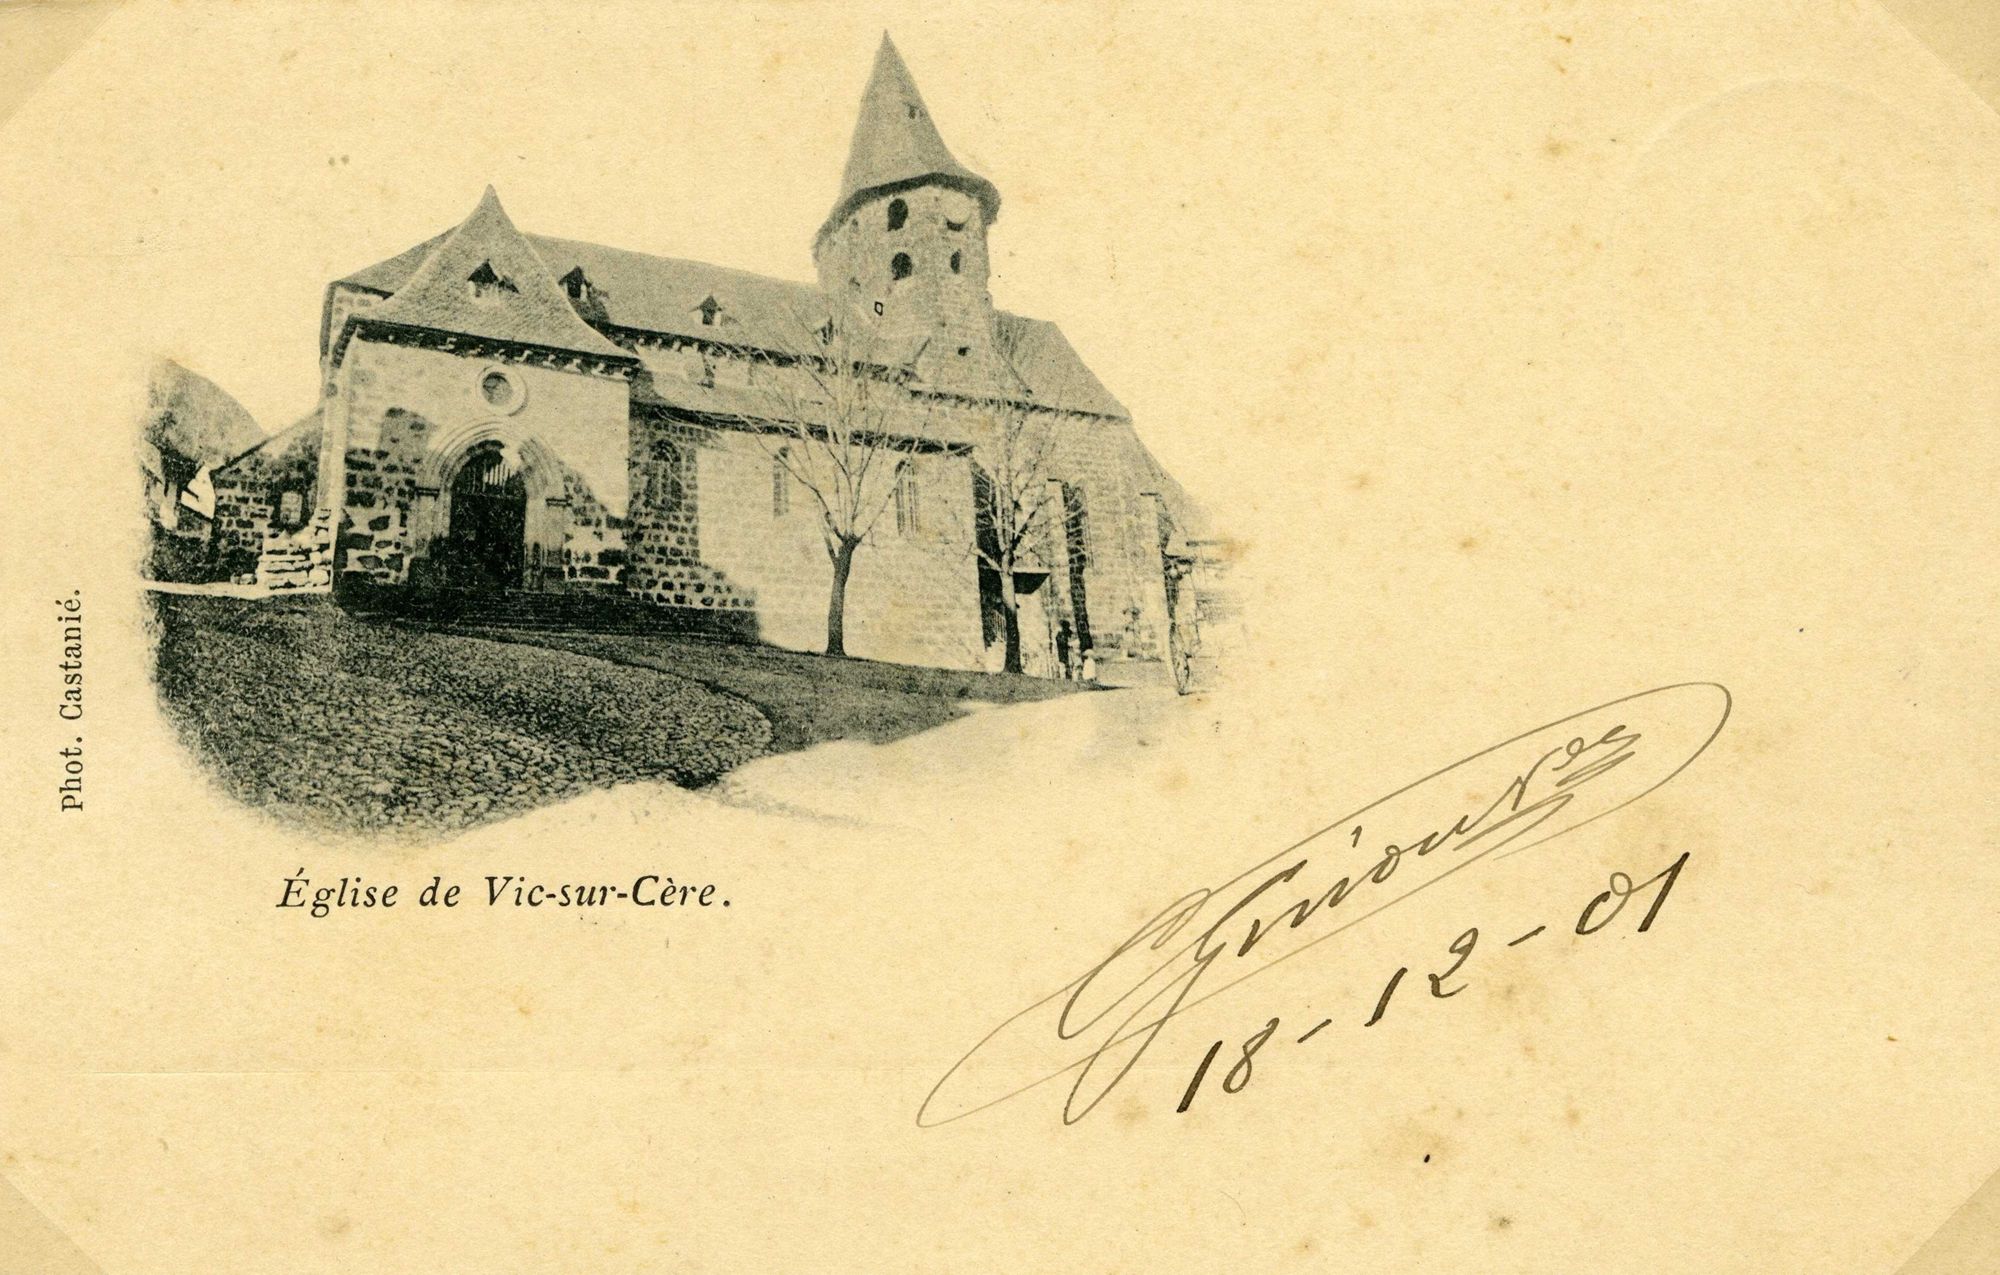 Phot. Castanié.
Église de Vic-sur-Cère.
18-12-01